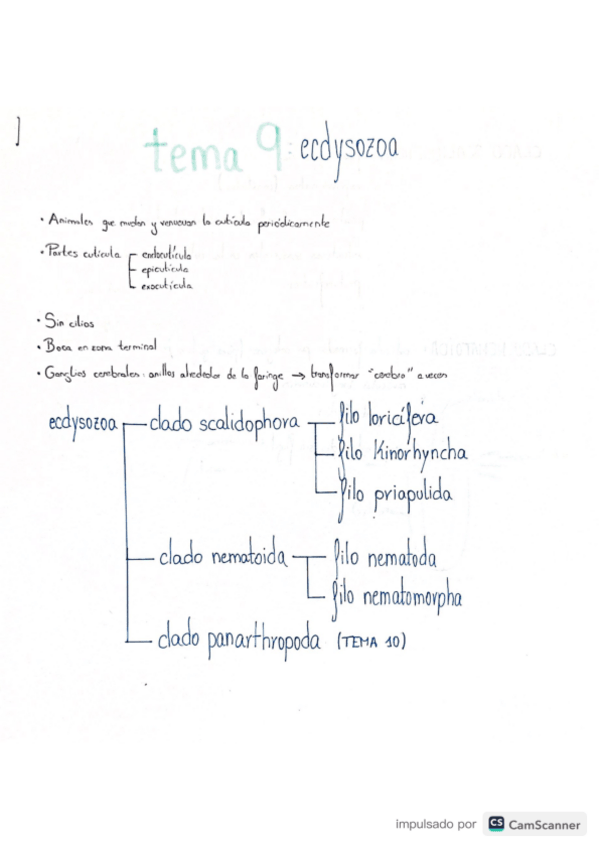 tema 9: ecdysozoa
• Animales que mudan y renuevan la cutícula periódicamente
• Partes cutícula
endocutícula
epicutícula
exocutícula
• Sin cilios
• Boca en zona terminal
• Ganglios cerebrales: anillos alrededor de la faringe → transforman "cerebro" a veces
ecdysozoa
clado scalidophora
filo loricífera
filo Kinorhyncha
filo priapulida
clado nematoida
filo nematoda
filo nematomorpha
clado panarthropoda (TEMA 10)
impulsado por CS CamScanner